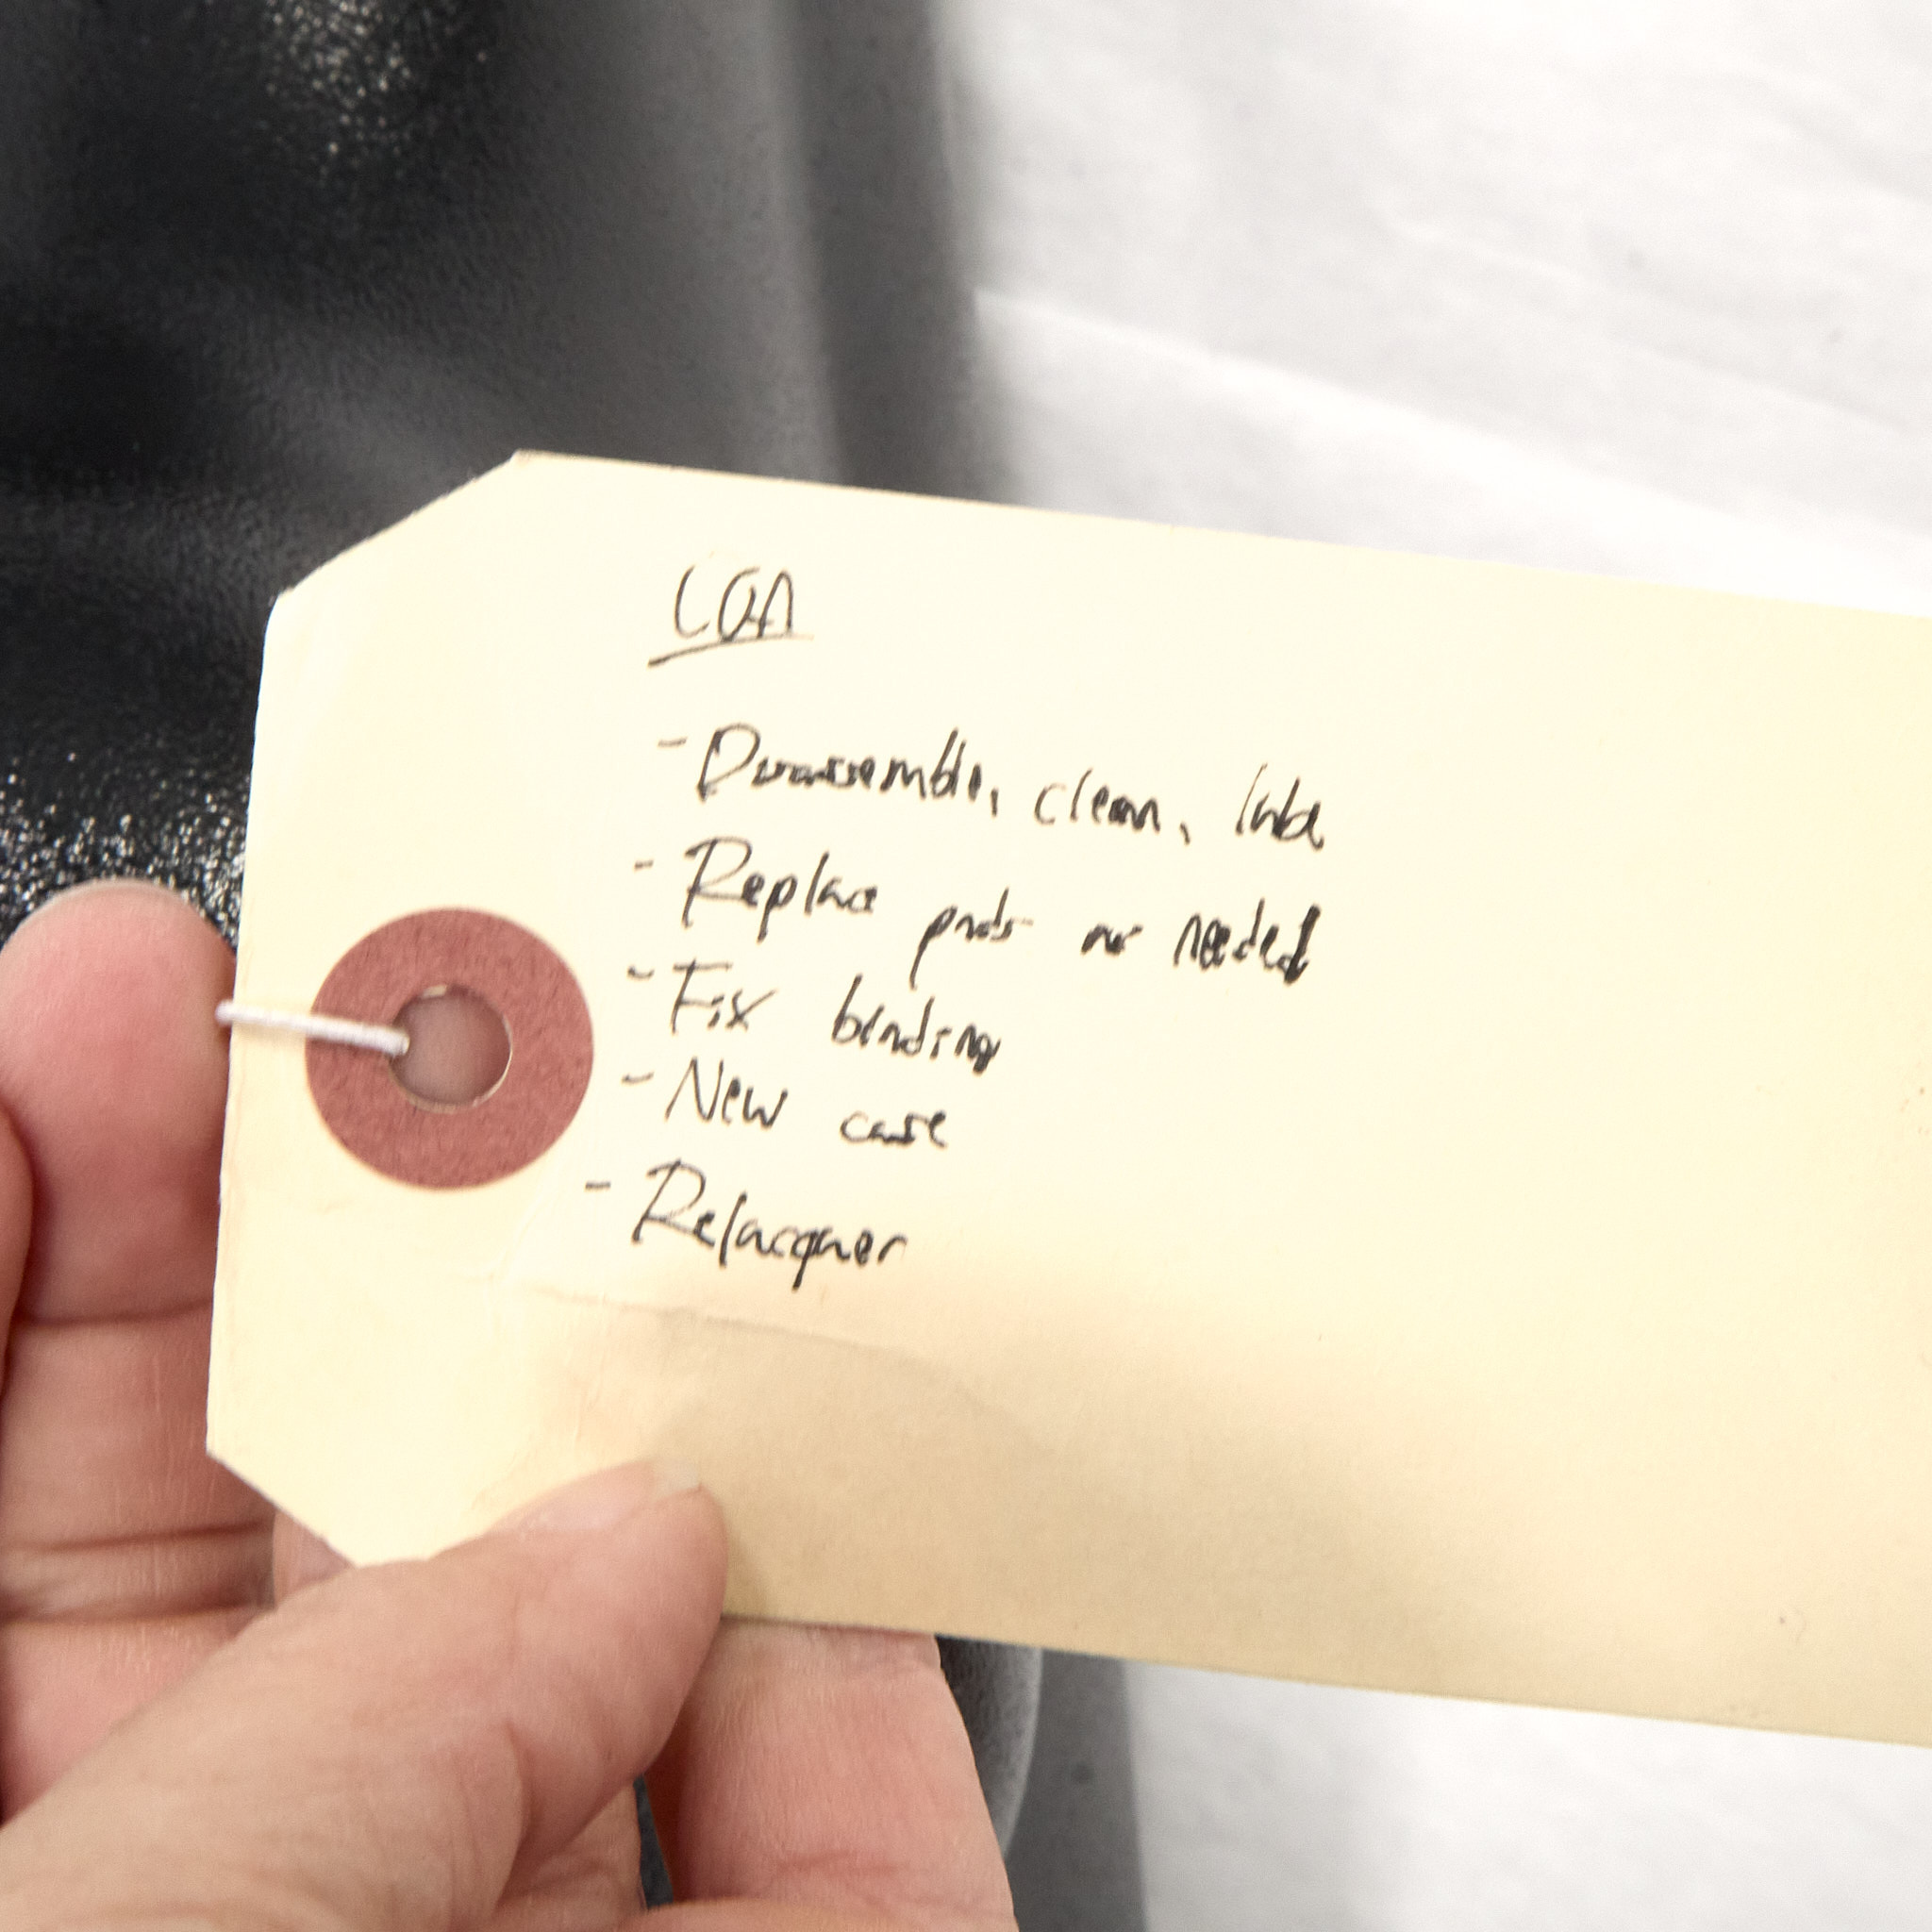 COA
- Disassemble, clean, lube
- Replace pads as needed
- Fix binding
- New case
- Relacquer